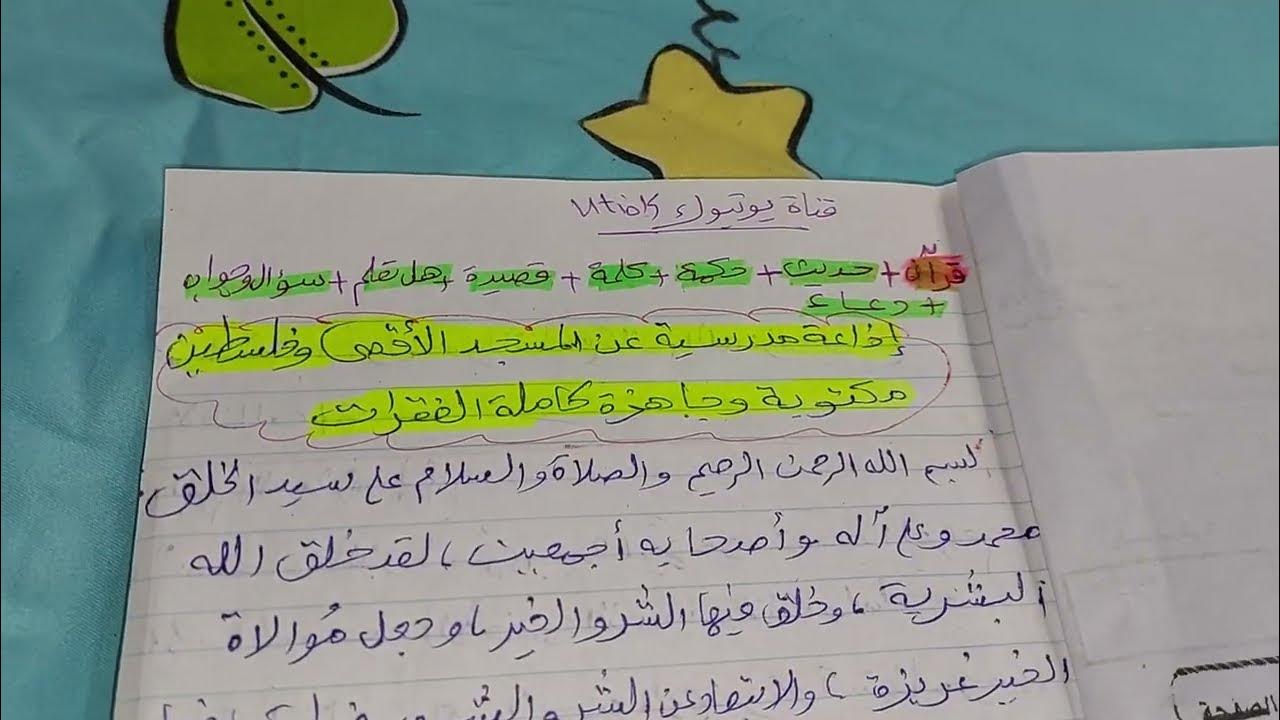 قناة يوتيوك Utiok
قرآن + حديث + حكمة + كلمة + قصيدة + هل تعلم + سؤال وجواب
+ دعاء
إذاعة مدرسية عن المسجد الأقصى وفلسطين
مكتوبة وجاهزة كاملة الفقرات
بسم الله الرحمن الرحيم والصلاة والسلام على سيد الخلق
محمد وعلى آله وأصحابه أجمعين، لقد خلق الله
البشرية، وخلق فيها الشر والخير، وجعل مُوالاة
الخير غريزة، والابتعاد عن الشر
الصفحة